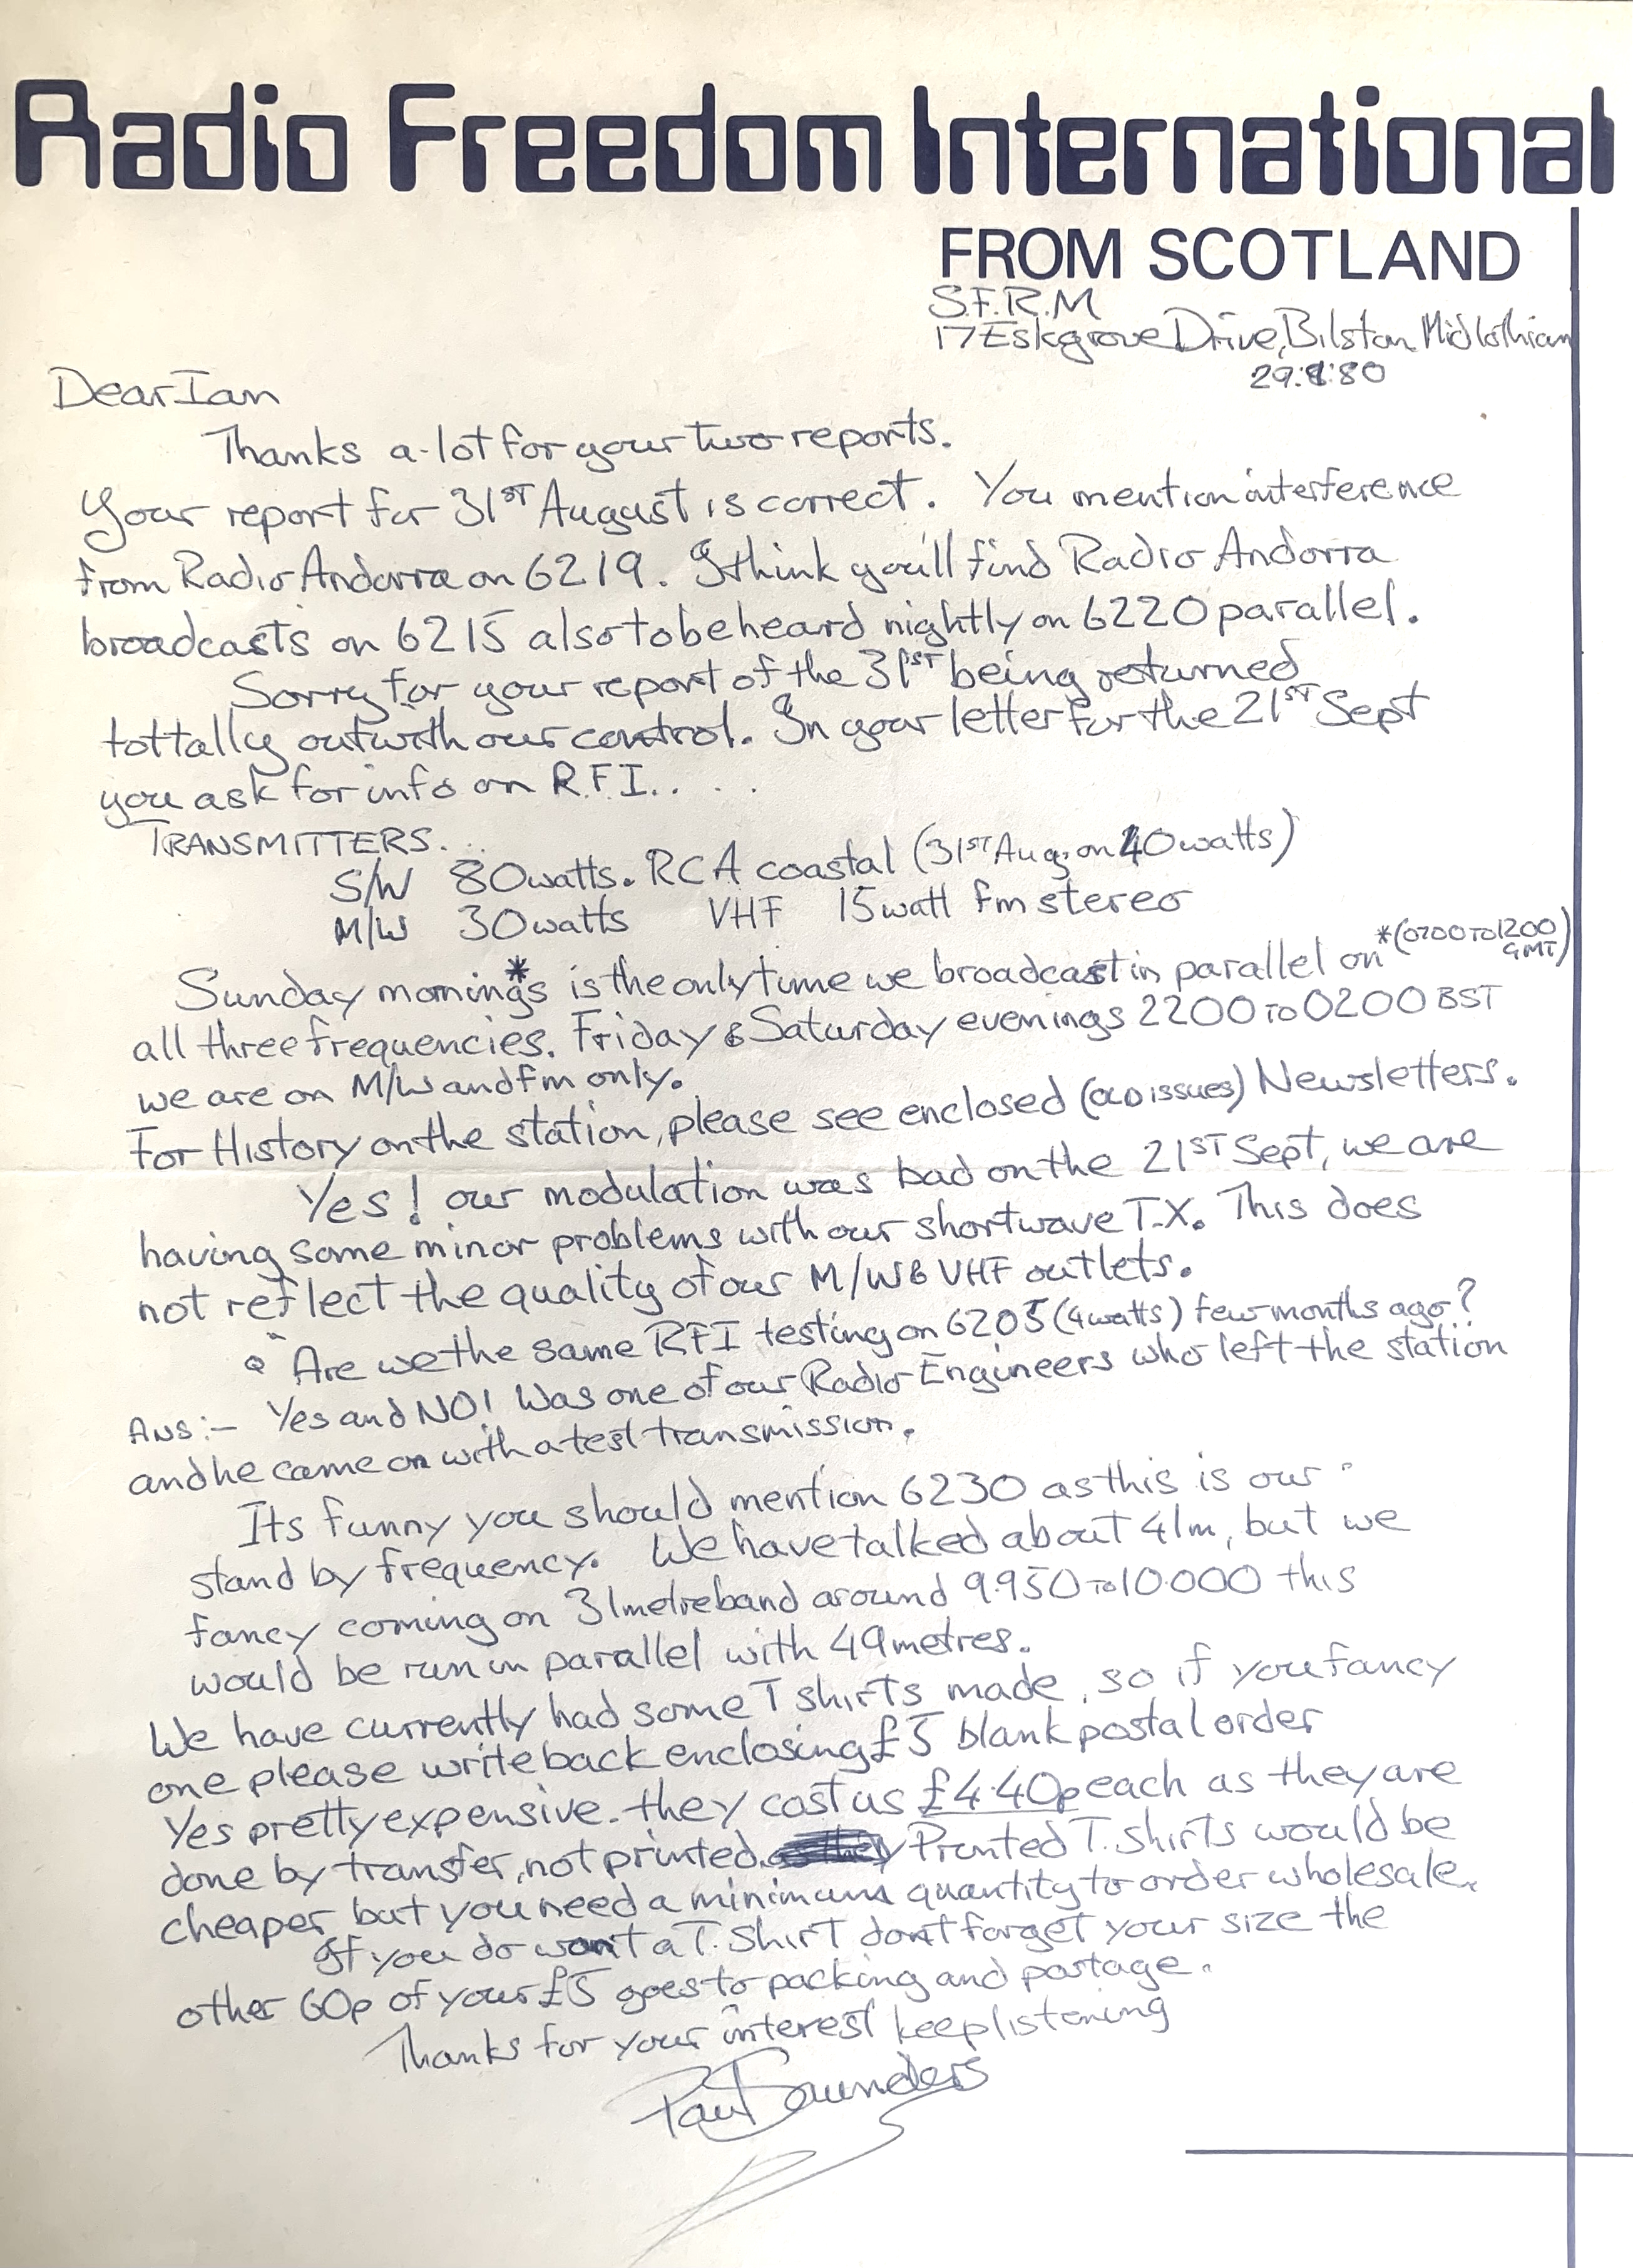 Radio Freedom International
FROM SCOTLAND
S.F.R.M
17 Eskgrove Drive, Bilston Midlothian
29:9:80
Dear Ian
Thanks a-lot for your two reports.
Your report for 31ST August is correct. You mention interference
from Radio Andorra on 6219. I think you'll find Radio Andorra
broadcasts on 6215 also to be heard nightly on 6220 parallel.
Sorry for your report of the 31ST being returned
tottally outwith our control. In your letter for the 21ST Sept
you ask for info on R.F.I. . . .
TRANSMITTERS. . .
S/W 80watts. RCA coastal (31ST Aug; on 40watts)
M/W 30watts VHF 15watt fm stereo
*(0700 TO 1200 GMT)
Sunday mornings* is the only time we broadcast in parallel on
all three frequencies. Friday & Saturday evenings 2200 TO 0200 BST
we are on M/W and fm only.
For History on the station, please see enclosed (OLD ISSUES) Newsletters.
Yes! our modulation was bad on the 21ST Sept, we are
having some minor problems with our shortwave T.X. This does
not reflect the quality of our M/W & VHF outlets.
Q "Are we the same RFI testing on 6205 (4watts) few months ago?
ANS:- Yes and NO! Was one of our Radio Engineers who left the station
and he came on with a test transmission.
Its funny you should mention 6230 as this is our
stand by frequency. We have talked about 41m, but we
fancy coming on 31metreband around 9.950 TO 10.000 this
would be run in parallel with 49metres.
We have currently had some T shirts made, so if you fancy
one please write back enclosing £5 blank postal order
Yes pretty expensive. they cost us £4.40p each as they are
done by transfer, not printed. Printed T. Shirts would be
cheaper but you need a minimum quantity to order wholesale.
If you do want a T. Shirt dont forget your size the
other 60p of your £5 goes to packing and postage.
Thanks for your interest keep listening
Paul Saunders